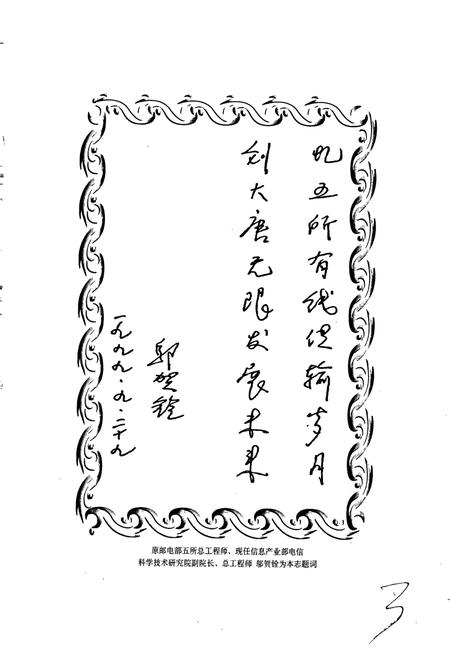 忆五所有线传输岁月
创大唐无限发展未来
邬贺铨
一九九九.九.二十九
原邮电部五所总工程师、现任信息产业部电信
科学技术研究院副院长、总工程师 邬贺铨为本志题词